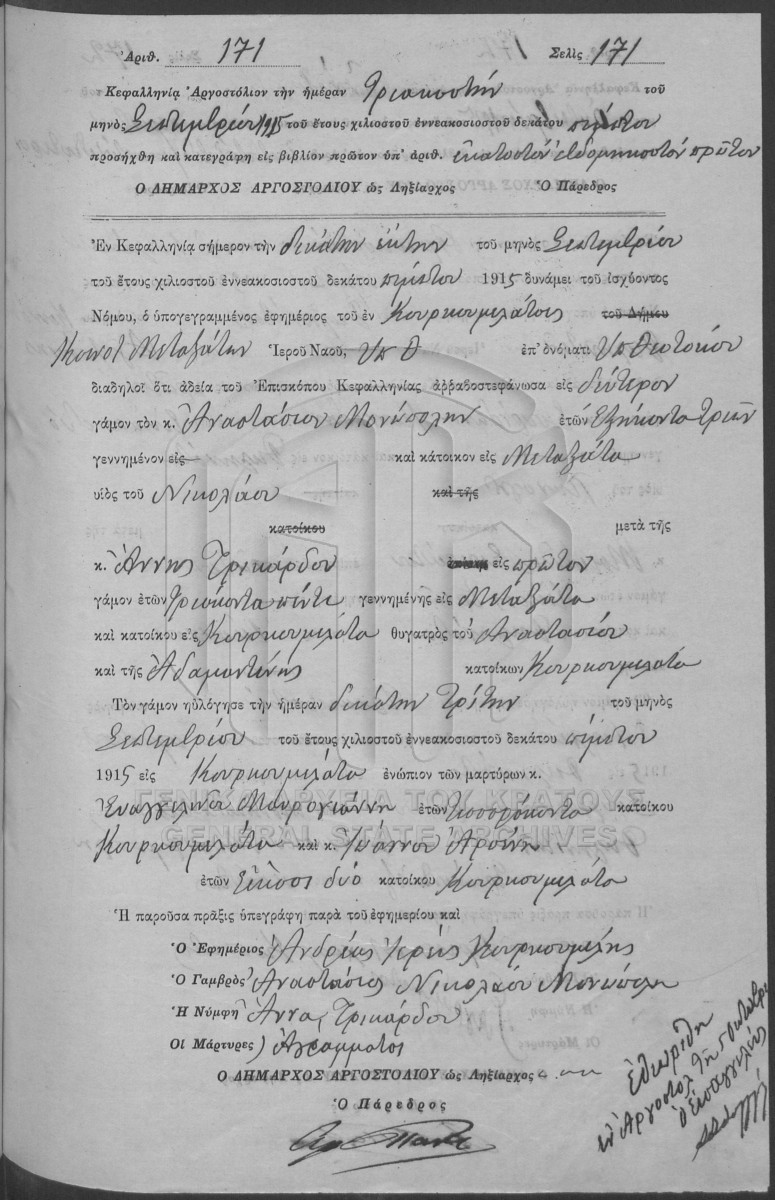 Ἀριθ. 171 Σελὶς 171
Κεφαλληνίᾳ Ἀργοστόλιον τὴν ἡμέραν Τριακοστήν τοῦ
μηνὸς Σεπτεμβρίου 1915 τοῦ ἔτους χιλιοστοῦ ἐννεακοσιοστοῦ δεκάτου πέμπτου
προσήχθη καὶ κατεγράφη εἰς βιβλίον πρῶτον ὑπ' ἀριθ. ἑκατοστὸν ἑβδομηκοστὸν πρῶτον
Ο ΔΗΜΑΡΧΟΣ ΑΡΓΟΣΤΟΛΙΟΥ ὡς Ληξίαρχος Ὁ Πάρεδρος
Ἐν Κεφαλληνίᾳ σήμερον τὴν δεκάτην ἕκτην τοῦ μηνὸς Σεπτεμβρίου
τοῦ ἔτους χιλιοστοῦ ἐννεακοσιοστοῦ δεκάτου πέμπτου 1915 δυνάμει τοῦ ἰσχύοντος
Νόμου, ὁ ὑπογεγραμμένος ἐφημέριος τοῦ ἐν Κουρκουμελάτοις τοῦ Δήμου
Κοινοτ Μεταξάτων Ἱεροῦ Ναοῦ, Υπ Θ ἐπ' ὀνόματι Υπ Θεοτόκου
διαδηλοῖ ὅτι ἀδείᾳ τοῦ Ἐπισκόπου Κεφαλληνίας ἀρραβοστεφάνωσα εἰς δεύτερον
γάμον τὸν κ. Ἀναστάσιον Μονόπολην ἐτῶν Ἑξήκοντα τριῶν
γεννημένον εἰς καὶ κάτοικον εἰς Μεταξάτα
υἱὸς τοῦ Νικολάου καὶ τῆς
κατοίκου μετὰ τῆς
κ. Ἄννης Τρικάρδου εἰς πρῶτον
γάμον ἐτῶν Τριάκοντα πέντε γεννημένης εἰς Μεταξάτα
καὶ κατοίκου εἰς Κουρκουμελάτα θυγατρὸς τοῦ Ἀναστασίου
καὶ τῆς Ἀδαμαντίνης κατοίκων Κουρκουμελάτα
Τὸν γάμον ηὐλόγησε τὴν ἡμέραν δεκάτην Τρίτην τοῦ μηνὸς
Σεπτεμβρίου τοῦ ἔτους χιλιοστοῦ ἐννεακοσιοστοῦ δεκάτου πέμπτου
1915 εἰς Κουρκουμελάτα ἐνώπιον τῶν μαρτύρων κ.
Εὐαγγελινοῦ Μαυρογιάννη ἐτῶν Τεσσαράκοντα κατοίκου
Κουρκουμελάτα καὶ κ. Ἰωάννου Ἀρσένη
ἐτῶν Εἴκοσι δύο κατοίκου Κουρκουμελάτα
ΓΕΝΙΚΑ ΑΡΧΕΙΑ ΤΟΥ ΚΡΑΤΟΥΣ
GENERAL STATE ARCHIVES
Ἡ παροῦσα πρᾶξις ὑπεγράφη παρὰ τοῦ ἐφημερίου καὶ
Ὁ Ἐφημέριος Ἀνδρέας Ἱερεὺς Κουρκουμέλης
Ὁ Γαμβρὸς Ἀναστάσιος Νικολάου Μονόπολη
Ἡ Νύμφη Ἄννα Τρικάρδου
Οἱ Μάρτυρες) Ἀγράμματος
Ο ΔΗΜΑΡΧΟΣ ΑΡΓΟΣΤΟΛΙΟΥ ὡς Ληξίαρχος
Ὁ Πάρεδρος
Ἐθεωρήθη
ἐν Ἀργοστολ τῇ
Ὁ Εἰσαγγελεὺς